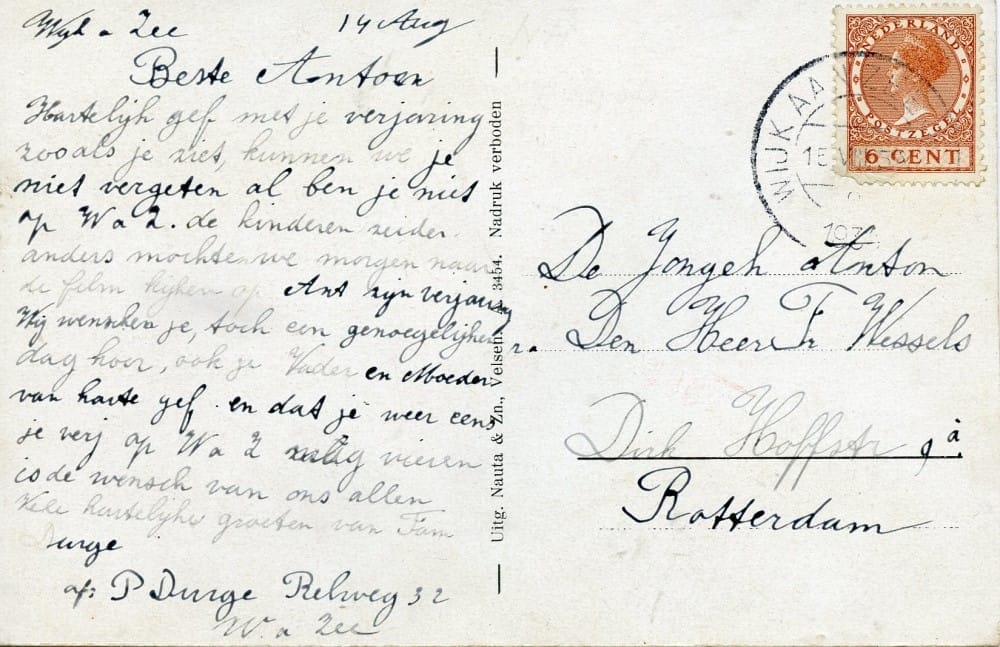 Wijk a Zee 14 Aug
Beste Antoon
Hartelijk gef met je verjaring
zooals je ziet, kunnen we je
niet vergeten al ben je niet
op W a Z. de kinderen zeiden
anders mochten we morgen naar
de film kijken op Ant zyn verjaring
Wij wenschen je, toch een genoegelijken
dag hoor, ook je Vader en Moeder
van harte gef en dat je weer eens
je verj op W a Z mag vieren
is de wensch van ons allen
Vele hartelijke groeten van Fam
Durge
af: P Durge Relweg 32
W. a Zee
Uitg. Nauta & Zn., Velsen. 3454. Nadruk verboden
NEDERLAND
POSTZEGEL
6 CENT
WIJK AA
De Jongeh Anton
Den Heere Fr Wessels
Dirk Hoffstr 9 a.
Rotterdam